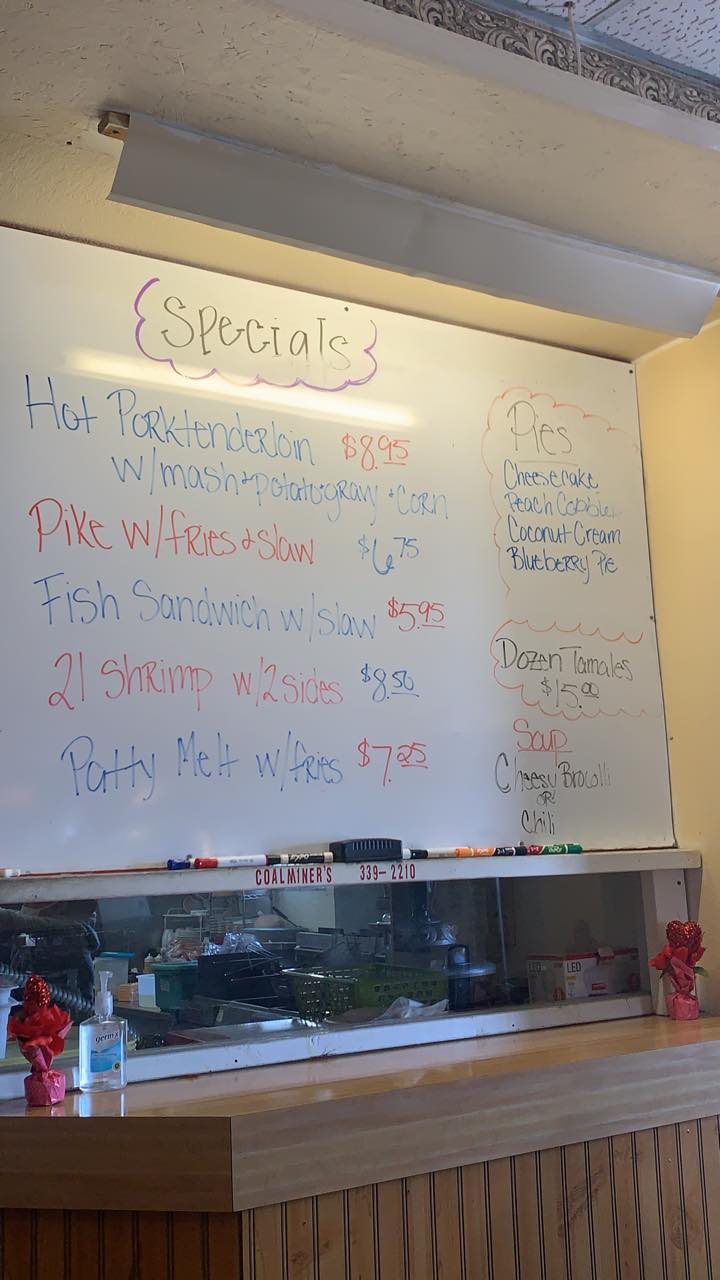 Specials
Hot Porktenderloin $8.95
w/mash+potato+gravy+corn
Pike w/fries & slaw $6.75
Fish Sandwich w/slaw $5.95
21 Shrimp w/2 sides $8.50
Patty Melt w/fries $7.25
Pies
Cheesecake
Peach Cobbler
Coconut Cream
Blueberry Pie
Dozen Tamales
$15.00
Soup
Cheesy Brocolli
OR
Chili
EXPO
COALMINER'S 339-2210
LED LED
germ-x